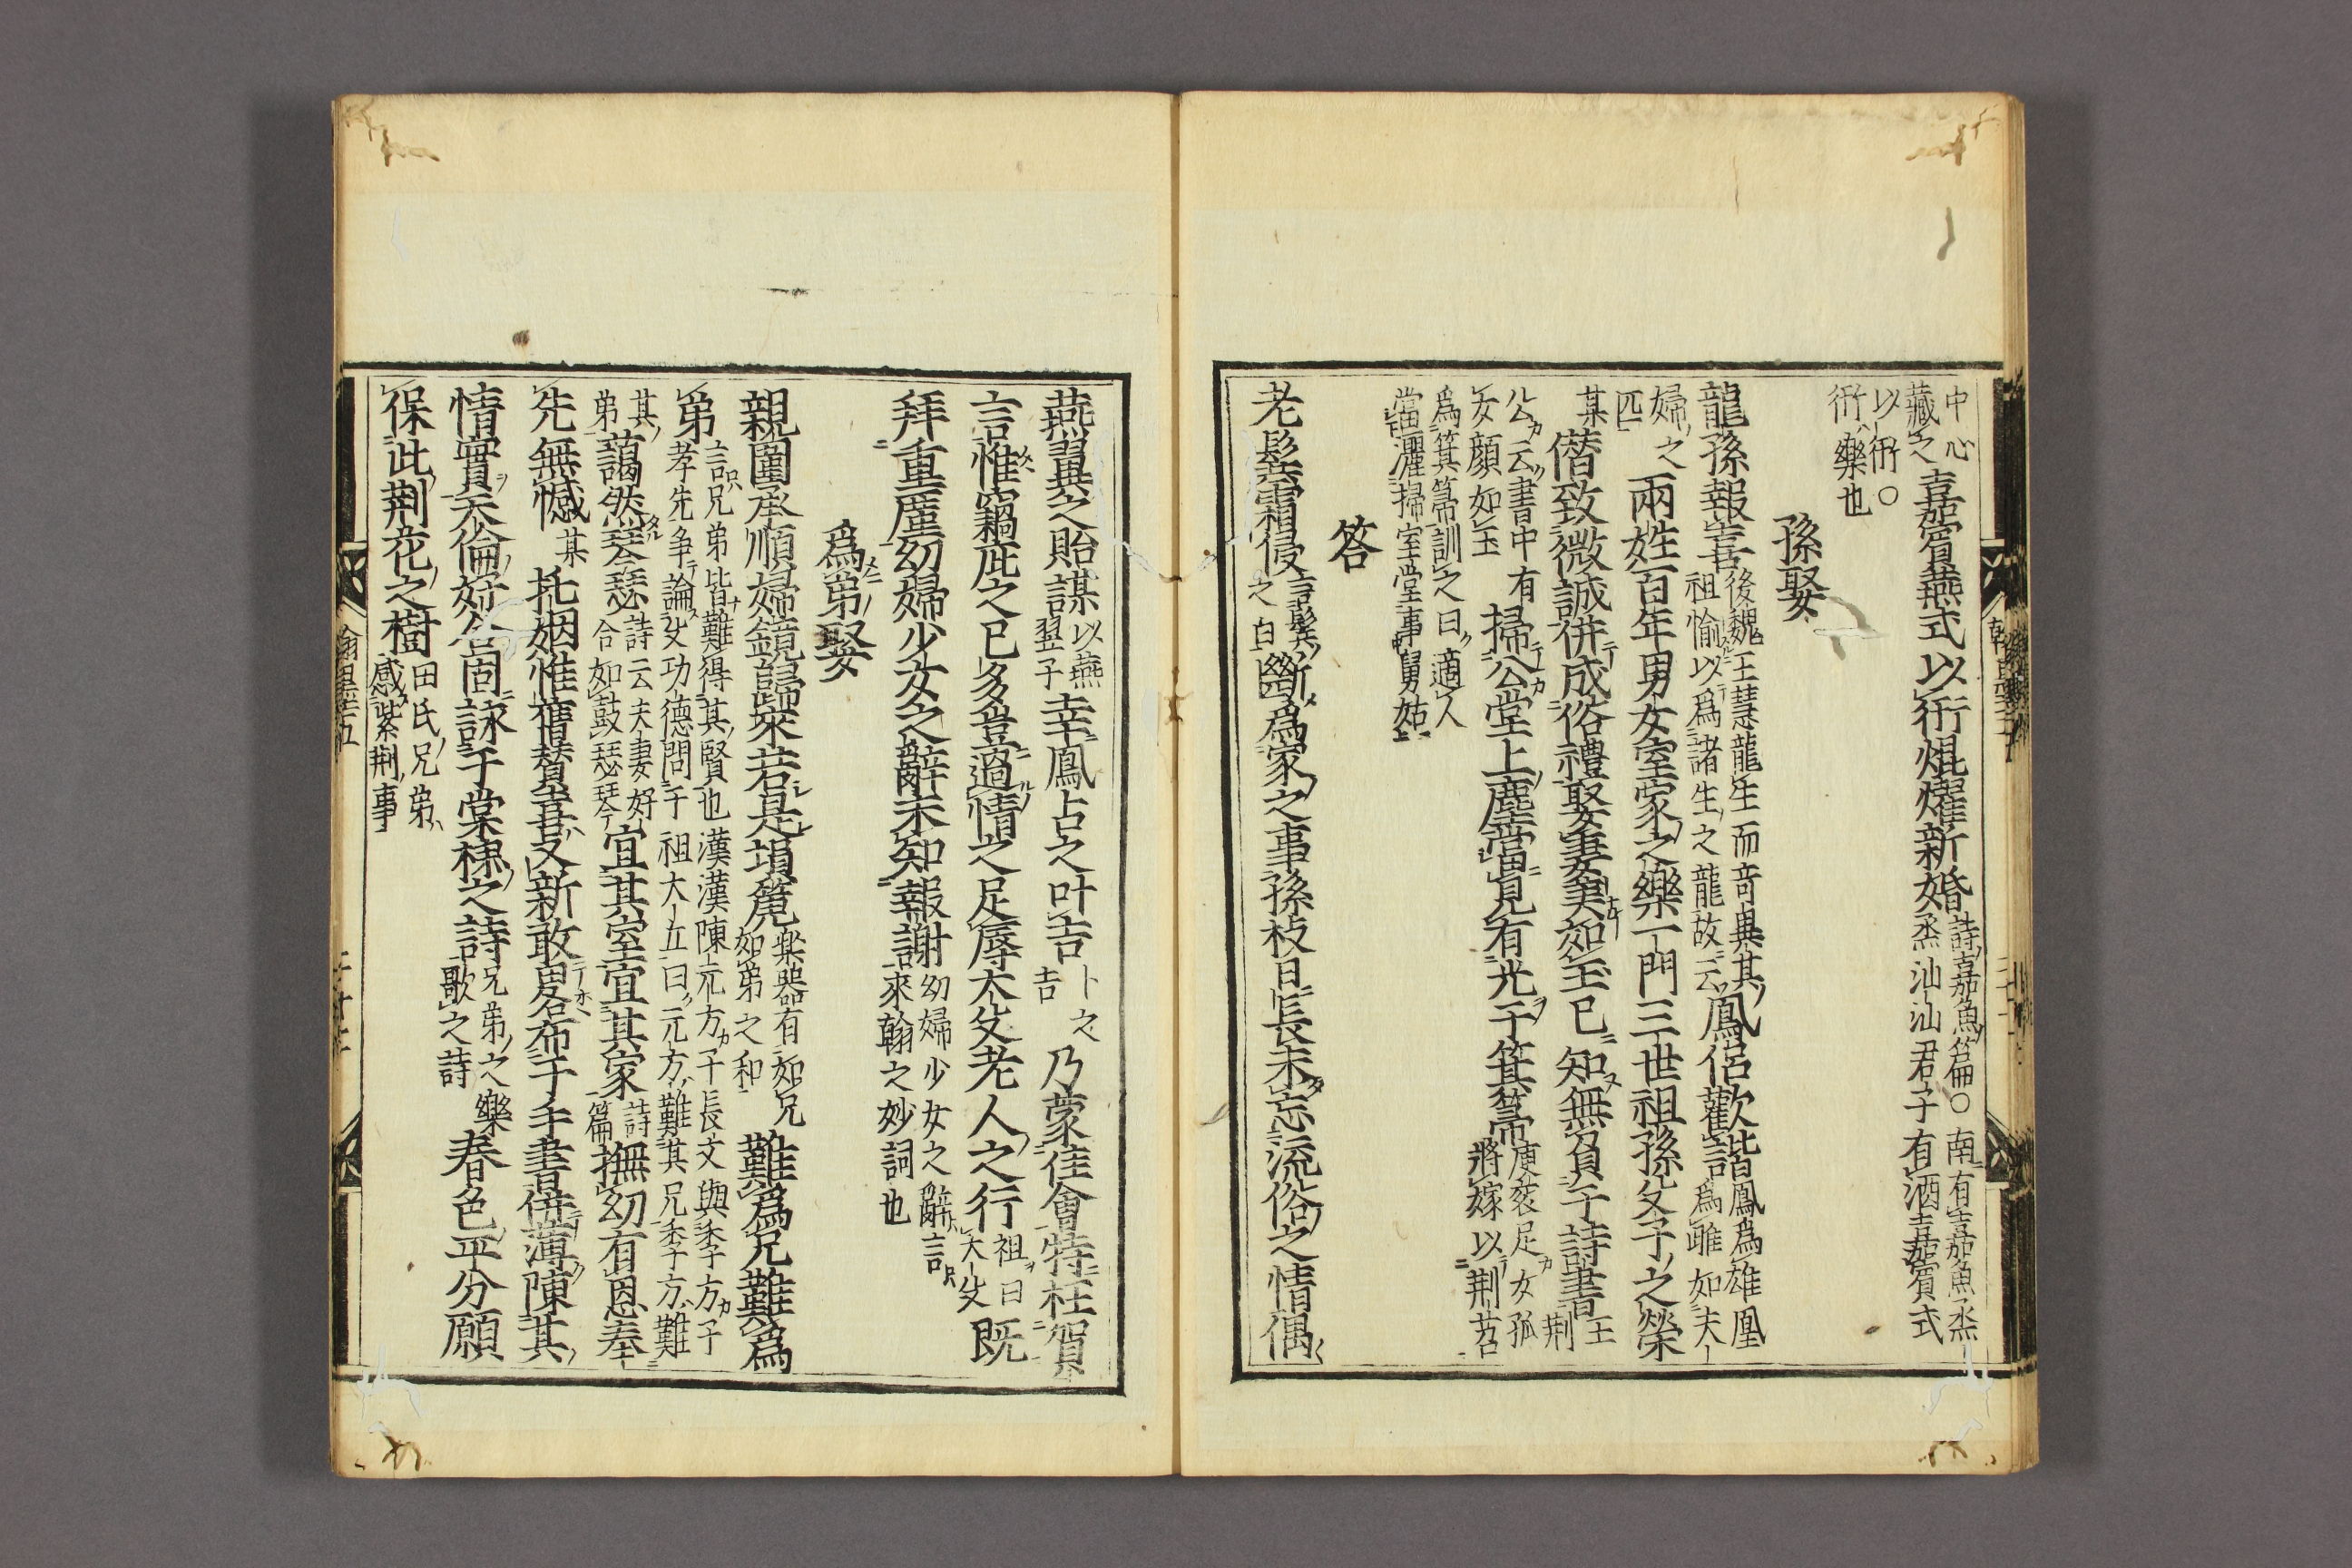 中心藏之嘉賓燕式以衎焜燿新婚詩嘉魚篇○南有嘉魚烝烝汕汕君子有酒嘉賓式
以衎○衎樂也
孫娶
龍孫報喜後魏王慧龍生而竒典其祖愉以爲諸生之龍故云鳳侶歡諧鳳爲雄凰爲雌如夫
婦之匹兩姓百年男女室家之樂一門三世祖孫父子之榮
某僣致微誠併成俗禮娶妻美如玉已知無負于詩書王荆
公云書中有女顔如玉掃公堂上塵當見有光于箕箒庾衮足女孤將嫁以荆苕
爲箕箒訓之曰適人當灑掃室堂事舅姑
答
老鬂霜侵言鬂之白斷爲家之事孫枝日長未忘流俗之情偶
燕翼之貽謀以燕翌子幸鳳占之叶吉卜之吉乃蒙佳會特枉賀
言惟竊庇之已多豈過情之足辱大父老人之行祖曰大父既
拜重塵幼婦少女之辭未知報謝幼婦少女之辭言來翰之妙詞也
爲弟娶
親闈承順婦鏡歸來若是塤箎樂器有如兄如弟之和難爲兄難爲
弟言兄弟皆難得其賢也漢漢陳元方子長文與季方子孝先争論父功德問于祖大丘曰元方難其兄季方難
其弟藹然琴瑟詩云夫妻好合如鼓瑟琴宜其室宜其家詩篇撫幼有恩奉
先無憾某托姻惟舊賛喜又新敢畧布于手書併薄陳其
情實天倫好合固詠于棠棣之詩兄弟之樂歌之詩春色平分願
保此荆花之樹田氏兄弟感紫荆事
翰墨五